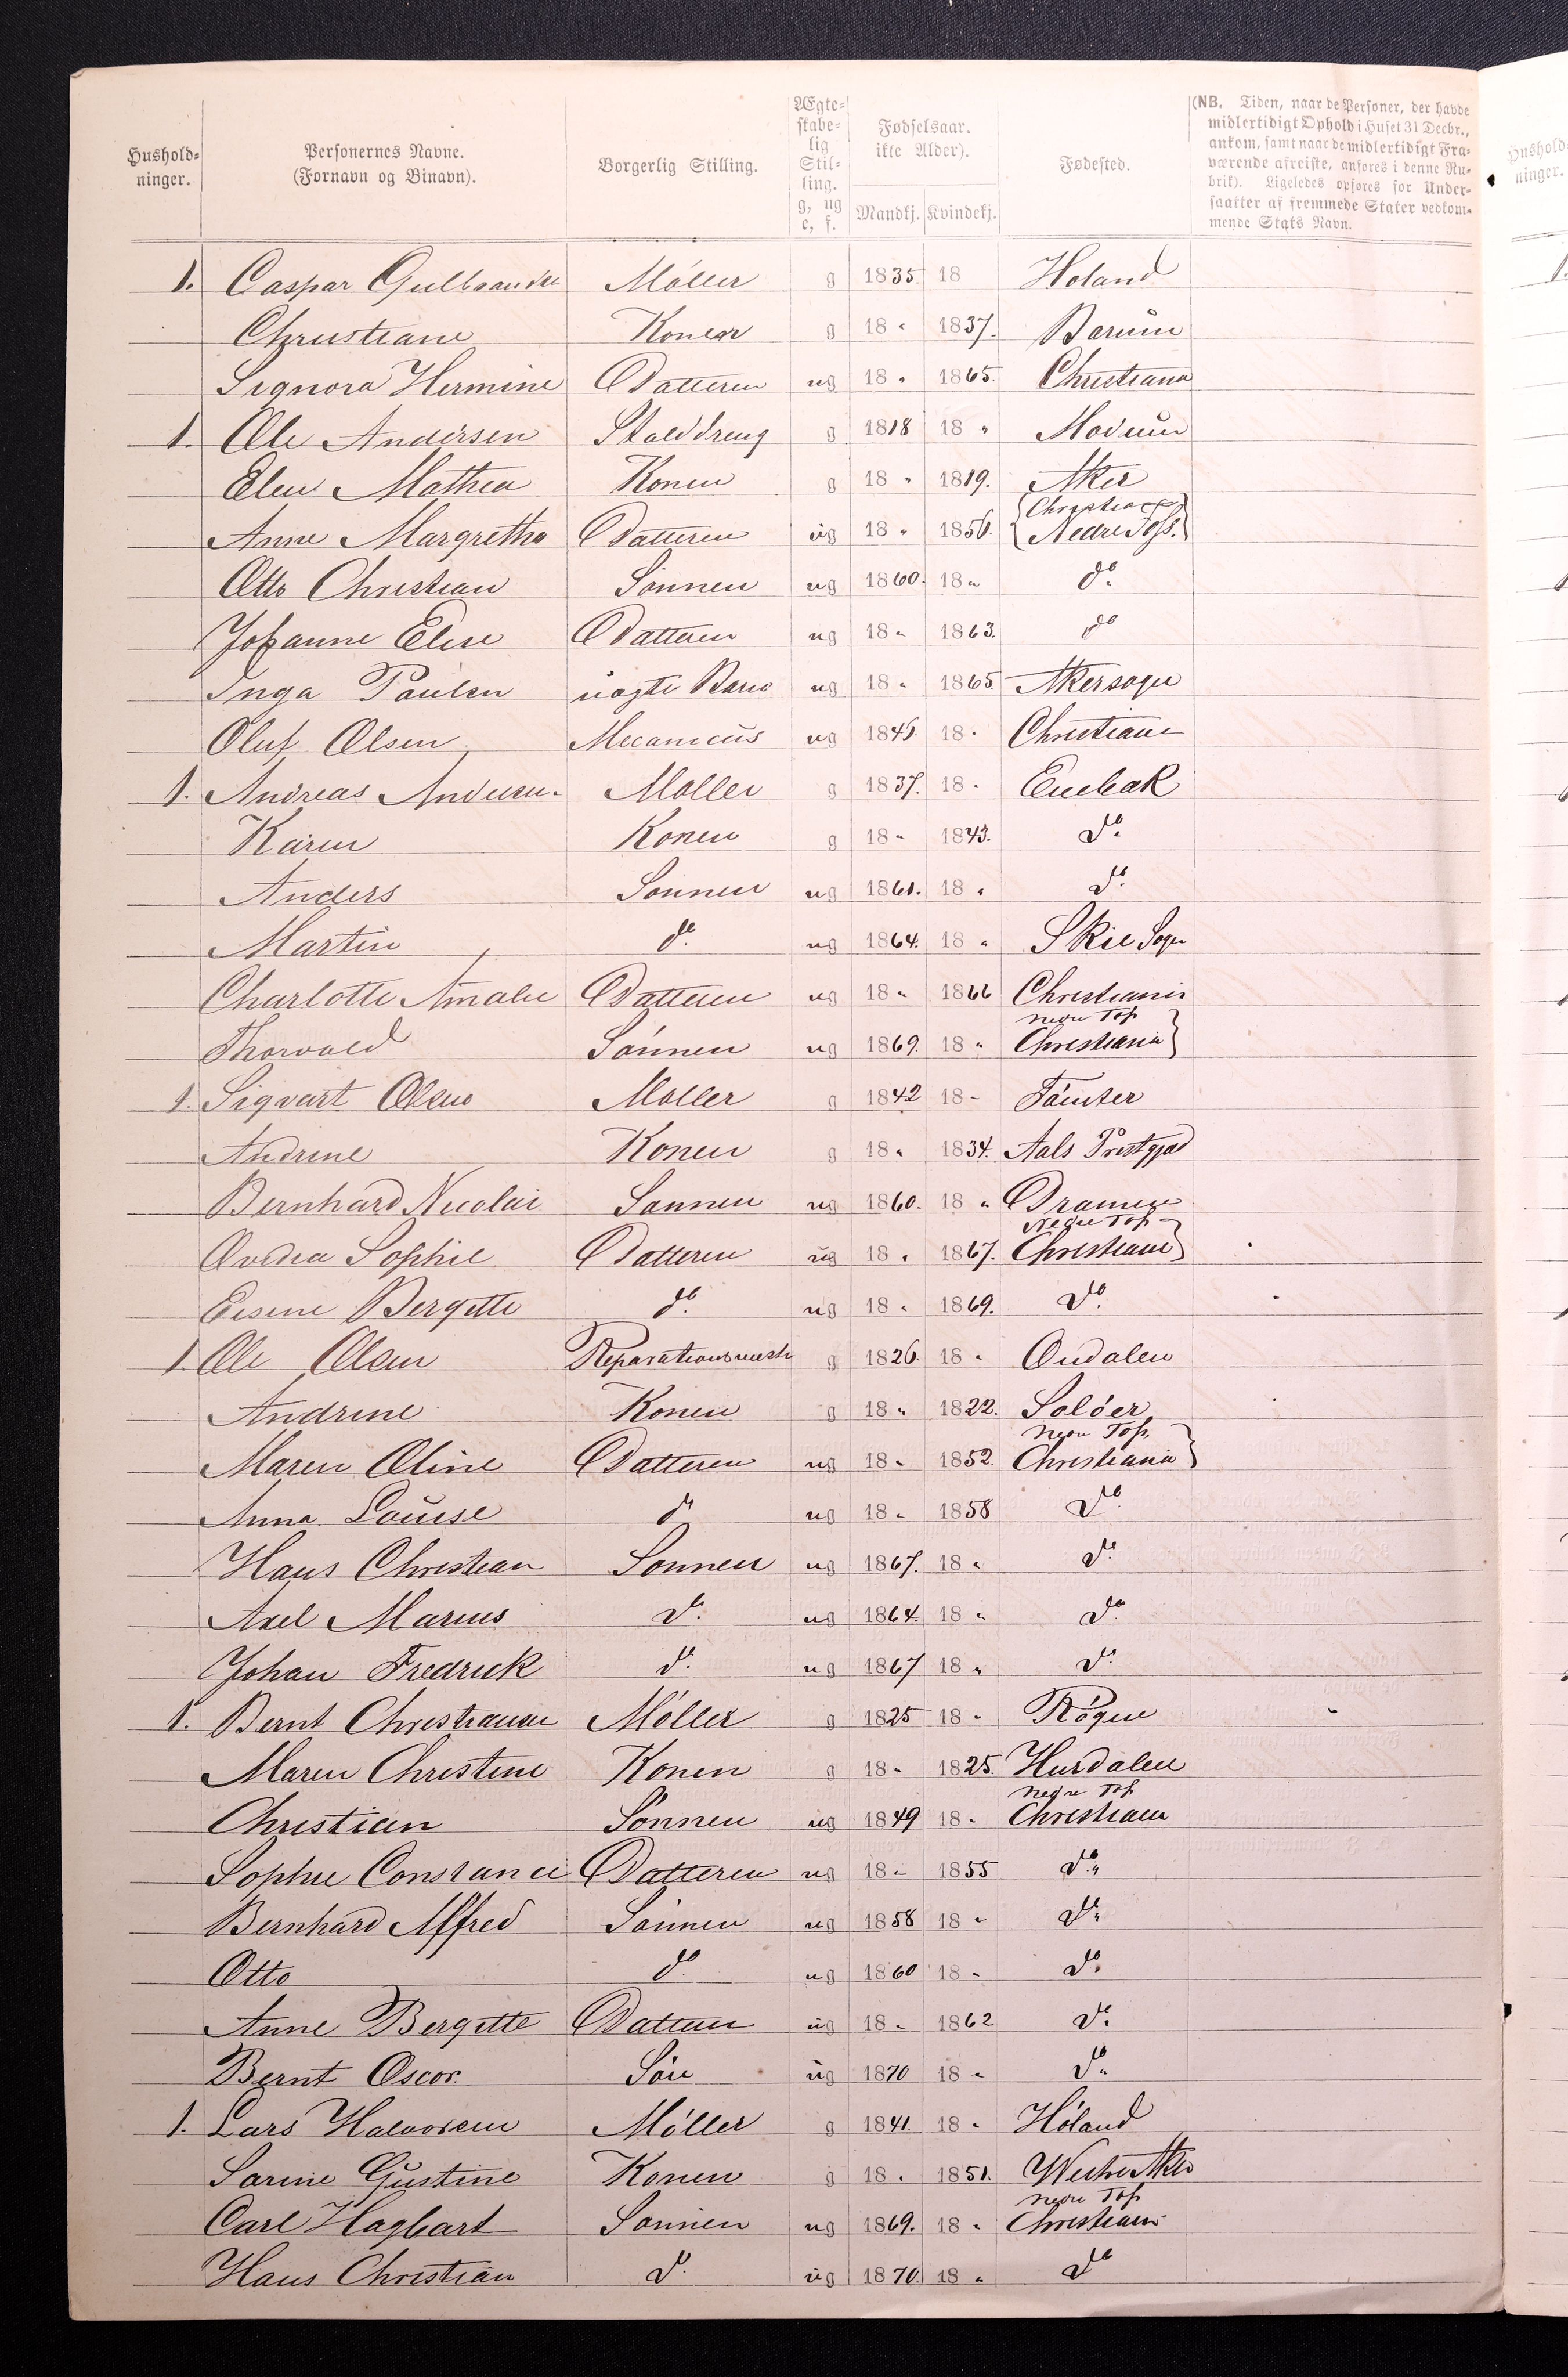 Hushold-
ninger.
Personernes Navne.
(Fornavn og Binavn).
Borgerlig Stilling.
Ægte-
skabe-
lig
Stil-
ling.
g, ug
e, f.
Fødselsaar.
ikke Alder).
Mandkj. Kvindekj.
Fødested.
(NB. Tiden, naar de Personer, der havde
midlertidigt Ophold i Huset 31 Decbr.,
ankom, samt naar de midlertidigt Fra-
værende afreiste, anføres i denne Ru-
brik). Ligeledes opføres for Under-
saatter af fremmede Stater vedkom-
mende Stats Navn.
1. Caspar Gulbrandse Møller g 1835 18 Høland
Christiane Konen g 18 " 1837. Barum
Signora Hermine Datteren ug 18 " 1865. Christiana
1. Ole Andersen Stalddreng g 1818 18 " Modum
Elen Mathea Konen g 18 " 1819. Aker
Anne Margrethe Datteren ug 18 " 1856. Christiania Nedre Foss.
Otto Christian Sønnen ug 1860. 18 " do.
Johanne Elise Datteren ug 18 " 1863. do
Inga Paulsen uægte Barn ug 18 " 1865 Akersogn
Oluf Olsen Mecanicus ug 1845 18 " Christiane
1. Andreas Andersen. Møller g 1837. 18 " Enebak
Karen Konen g 18 " 1843. do.
Anders Sønnen ug 1861. 18 " do.
Martin do. ug 1864. 18 " Skie Sogn
Charlotte Amalie Datteren ug 18 " 1866 Christiania
Thorvald Sønnen ug 1869. 18 " Nedre Fos Christiania
1. Sigvart Olsen Møller g 1842 18 "
Andrine Konen g 18 " 1834. Aals Prestgjed
Bernhard Nicolai Sønnen ug 1860. 18 " Dramen
Ovedia Sophie Datteren ug 18 " 1867. Nedre Fos Christiane
Bergitte do. ug 18 " 1869. do.
1. Ole Olsen Reparationsmest g 1826. 18 " Oudalen
Andrine Konen g 18 " 1822. Soløer
Maren Oline Datteren ug 18 " 1852. Nedre Fos Christiania
Anna Louise do ug 18 " 1858 do
Hans Christian Sønnen ug 1867. 18 " do.
Axel Marius do. ug 1864. 18 " do
Johan Fredrick do. ug 1867 18 " do
1. Bernt Christiansen Møller g 1825 18 " Røgen
Maren Christine Konen g 18 " 1825. Hurdalen
Christian Sønnen ug 1849 18 " Nedre Fos Christiania
Sophie Constance Datteren ug 18 " 1855 do.
Bernhard Alfred Sønnen ug 1858 18 " do.
Otto do ug 1860 18 " do.
Anne Bergitte Datteren ug 18 " 1862 do.
Bernt Oscor. Søn ug 1870 18 " do.
1. Lars Halvorsen Møller g 1841. 18 " Høland
Sarine Gustine Konen g 18 " 1851. Westre Aker
Carl Hagbart Sønnen ug 1869. 18 " Nedre Fos Christiania
Hans Christian do. ug 1870 18 " do